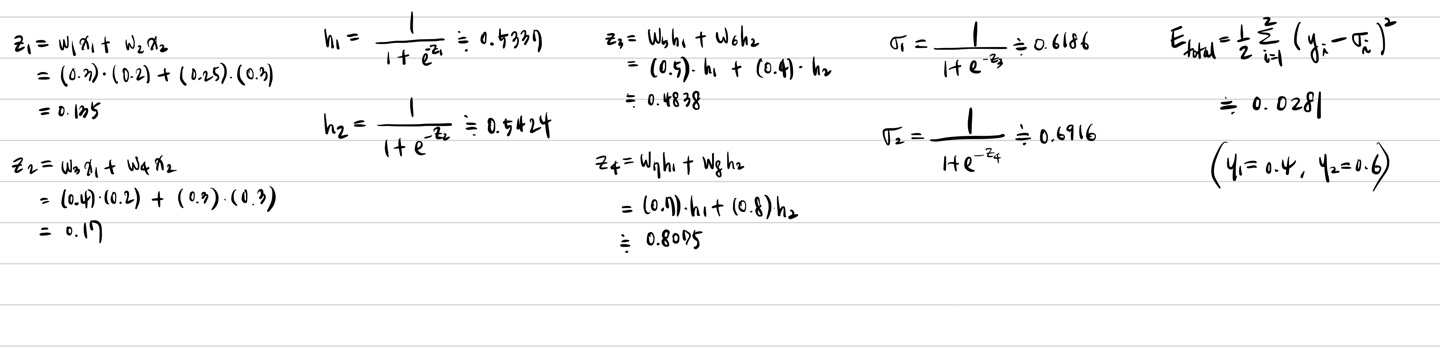 z₁ = w₁x₁ + w₂x₂
= (0.3)·(0.2) + (0.25)·(0.3)
= 0.135
z₂ = w₃x₁ + w₄x₂
= (0.4)·(0.2) + (0.3)·(0.3)
= 0.17
h₁ = 1/(1 + e^(-z₁)) ≒ 0.5337
h₂ = 1/(1 + e^(-z₂)) ≒ 0.5424
z₃ = w₅h₁ + w₆h₂
= (0.5)·h₁ + (0.4)·h₂
≒ 0.4838
z₄ = w₇h₁ + w₈h₂
= (0.7)·h₁ + (0.8)h₂
≒ 0.8075
σ₁ = 1/(1 + e^(-z₃)) ≒ 0.6186
σ₂ = 1/(1 + e^(-z₄)) ≒ 0.6916
E_total = 1/2 Σ_{i=1}^{2} (y_i − σ_i)²
≒ 0.0281
(y₁ = 0.4, y₂ = 0.6)